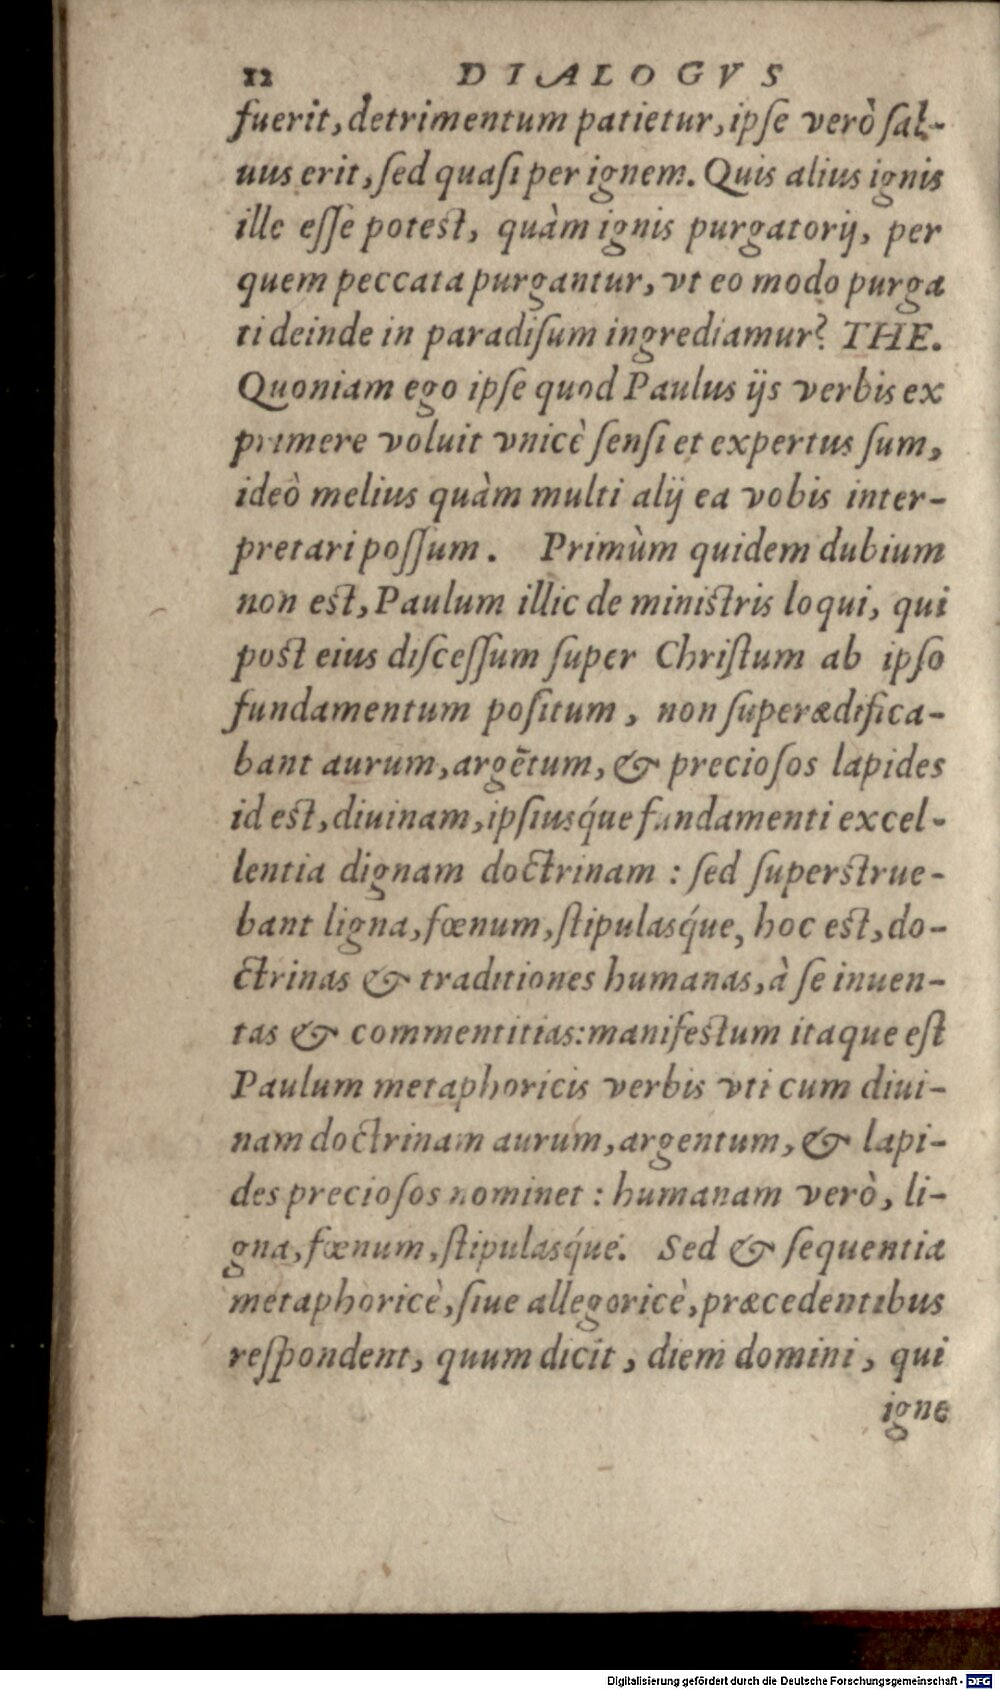 12 DIALOGVS
fuerit, detrimentum patietur, ipſe verò ſal-
uus erit, ſed quaſi per ignem. Quis alius ignis
ille eſſe poteſt, quàm ignis purgatorij, per
quem peccata purgantur, vt eo modo purga
ti deinde in paradiſum ingrediamur? THE.
Quoniam ego ipſe quod Paulus ijs verbis ex
primere voluit vnicè ſenſi et expertus ſum,
ideò melius quàm multi alij ea vobis inter-
pretari poſſum. Primùm quidem dubium
non eſt, Paulum illic de miniſtris loqui, qui
poſt eius diſceſſum ſuper Chriſtum ab ipſo
fundamentum poſitum, non ſuperædifica-
bant aurum, argētum, & precioſos lapides
id eſt, diuinam, ipſiusq́ue fundamenti excel-
lentia dignam doctrinam : ſed ſuperſtrue-
bant ligna, fœnum, ſtipulasq́ue, hoc eſt, do-
ctrinas & traditiones humanas, à ſe inuen-
tas & commentitias: manifeſtum itaque eſt
Paulum metaphoricis verbis vti cum diui-
nam doctrinam aurum, argentum, & lapi-
des precioſos nominet : humanam verò, li-
gna, fœnum, ſtipulasq́ue. Sed & ſequentia
metaphoricè, ſiue allegoricè, præcedentibus
reſpondent, quum dicit, diem domini, qui
igne
Digitalisierung gefördert durch die Deutsche Forschungsgemeinschaft - DFG